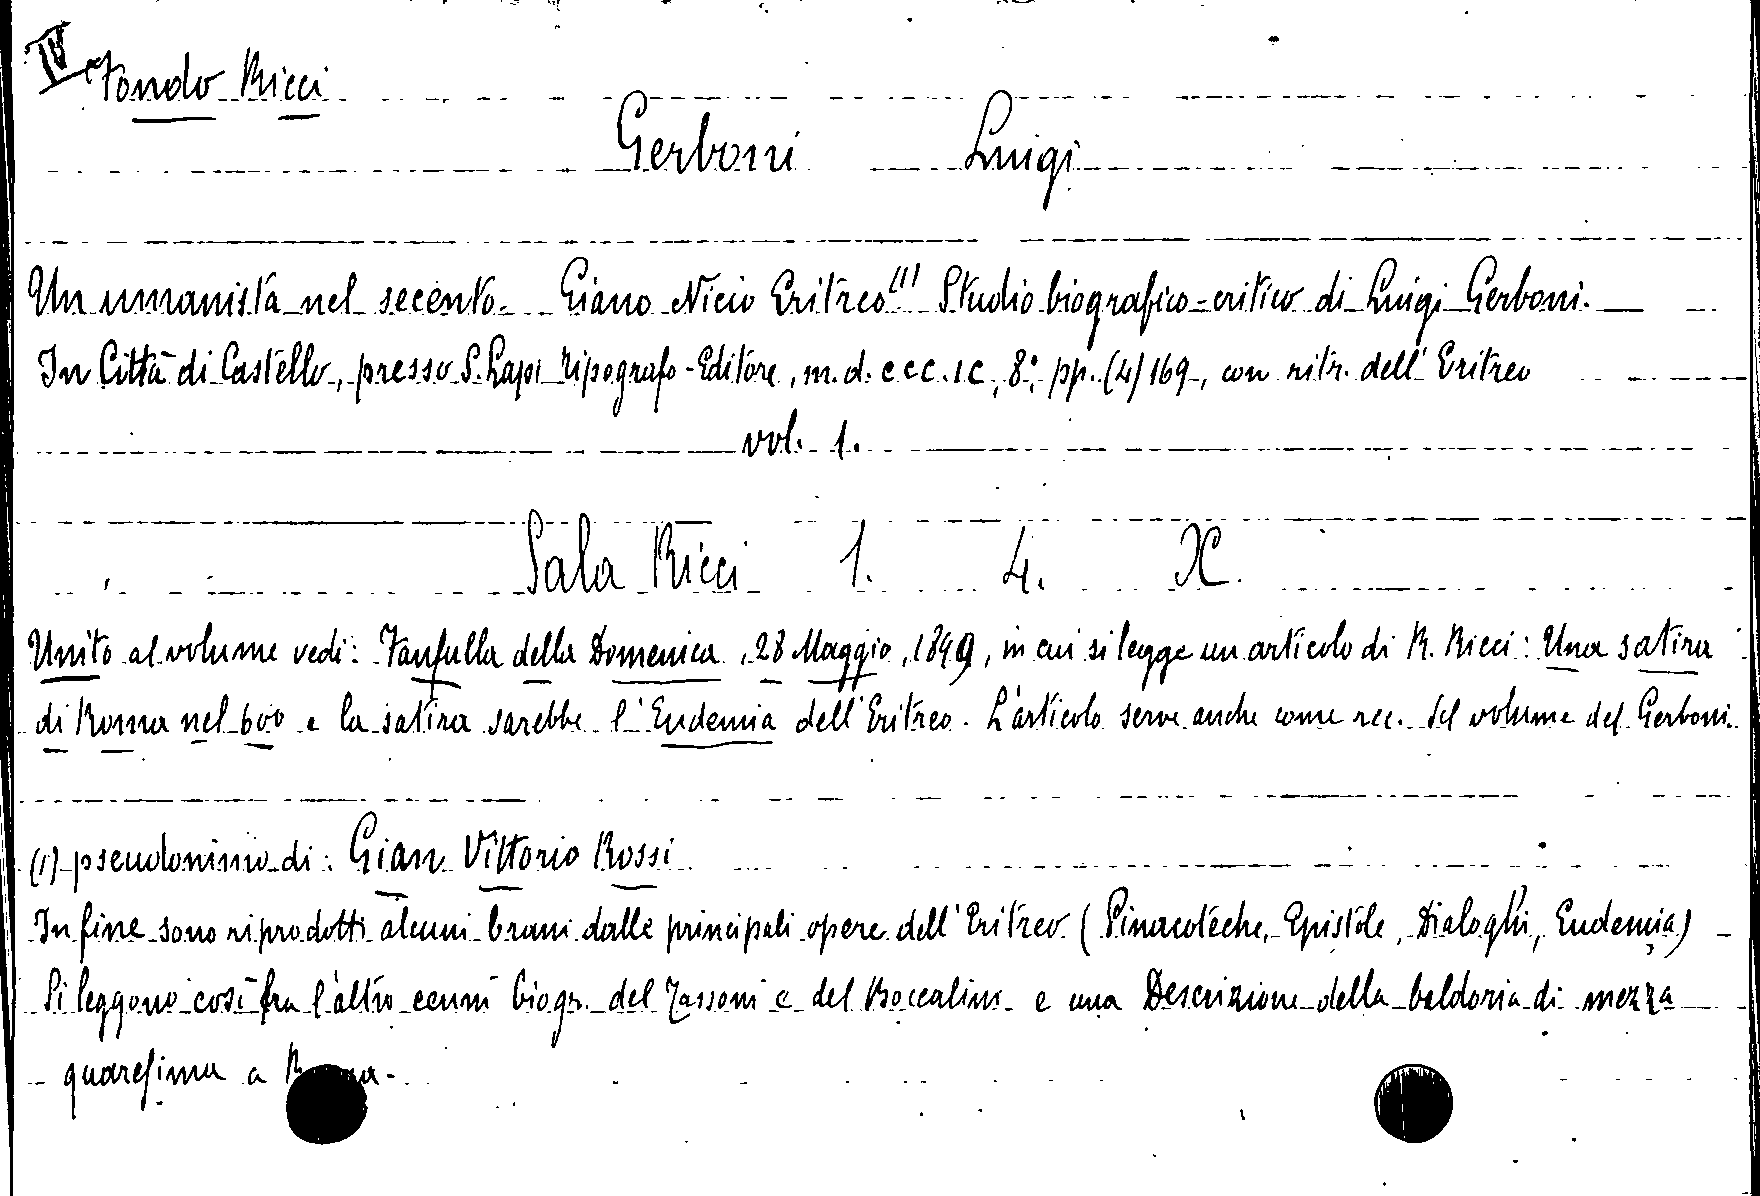 IV Fondo Ricci
Gerboni Luigi
Un umanista nel secento. Giano Nicio Eritreo (1) Studio biografico-critico di Luigi Gerboni.
In Città di Castello, presso S. Lapi Tipografo-Editore, m.d.ccc.ic, 8°, pp. (4) 169, con ritr. dell'Eritreo
vol. 1.
Sala Ricci 1. 4. X.
Unito al volume vedi: Fanfulla della Domenica, 28 Maggio, 1899, in cui si legge un articolo di R. Ricci: Una satira
di Roma nel 600 e la satira sarebbe l'Eudemia dell'Eritreo. L'articolo serve anche come rec. del volume del Gerboni.
(1) pseudonimo di: Gian Vittorio Rossi
In fine sono riprodotti alcuni brani dalle principali opere dell'Eritreo (Pinacoteche, Epistole, Dialoghi, Eudemia)
Si leggono così fra l'altro cenni biogr. del Tassoni e del Boccalini e una Descrizione della baldoria di mezza
quaresima a Roma.